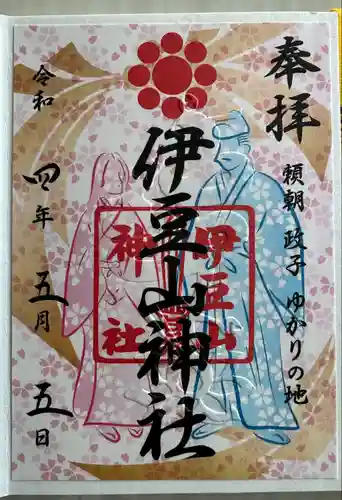 奉拝
頼朝 政子 ゆかりの地
伊豆山神社
伊豆山
神社
令和 四年 五月 五日